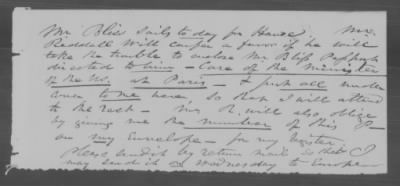 Mr Bliss sails to day for Havre, Mr.
Riddall will confer a favor if he will
take the trouble to enclose Mr Bliss Passport
directed to him - Care of the Minister
of the U.S. at Paris - & put all under
cover to me here, so that I will attend
to the rest - Mr R. will also oblige
by giving me the number of this P-
on my Envelope - for my register
Please send it by return mail so that I
may send it on Wednesday to Europe